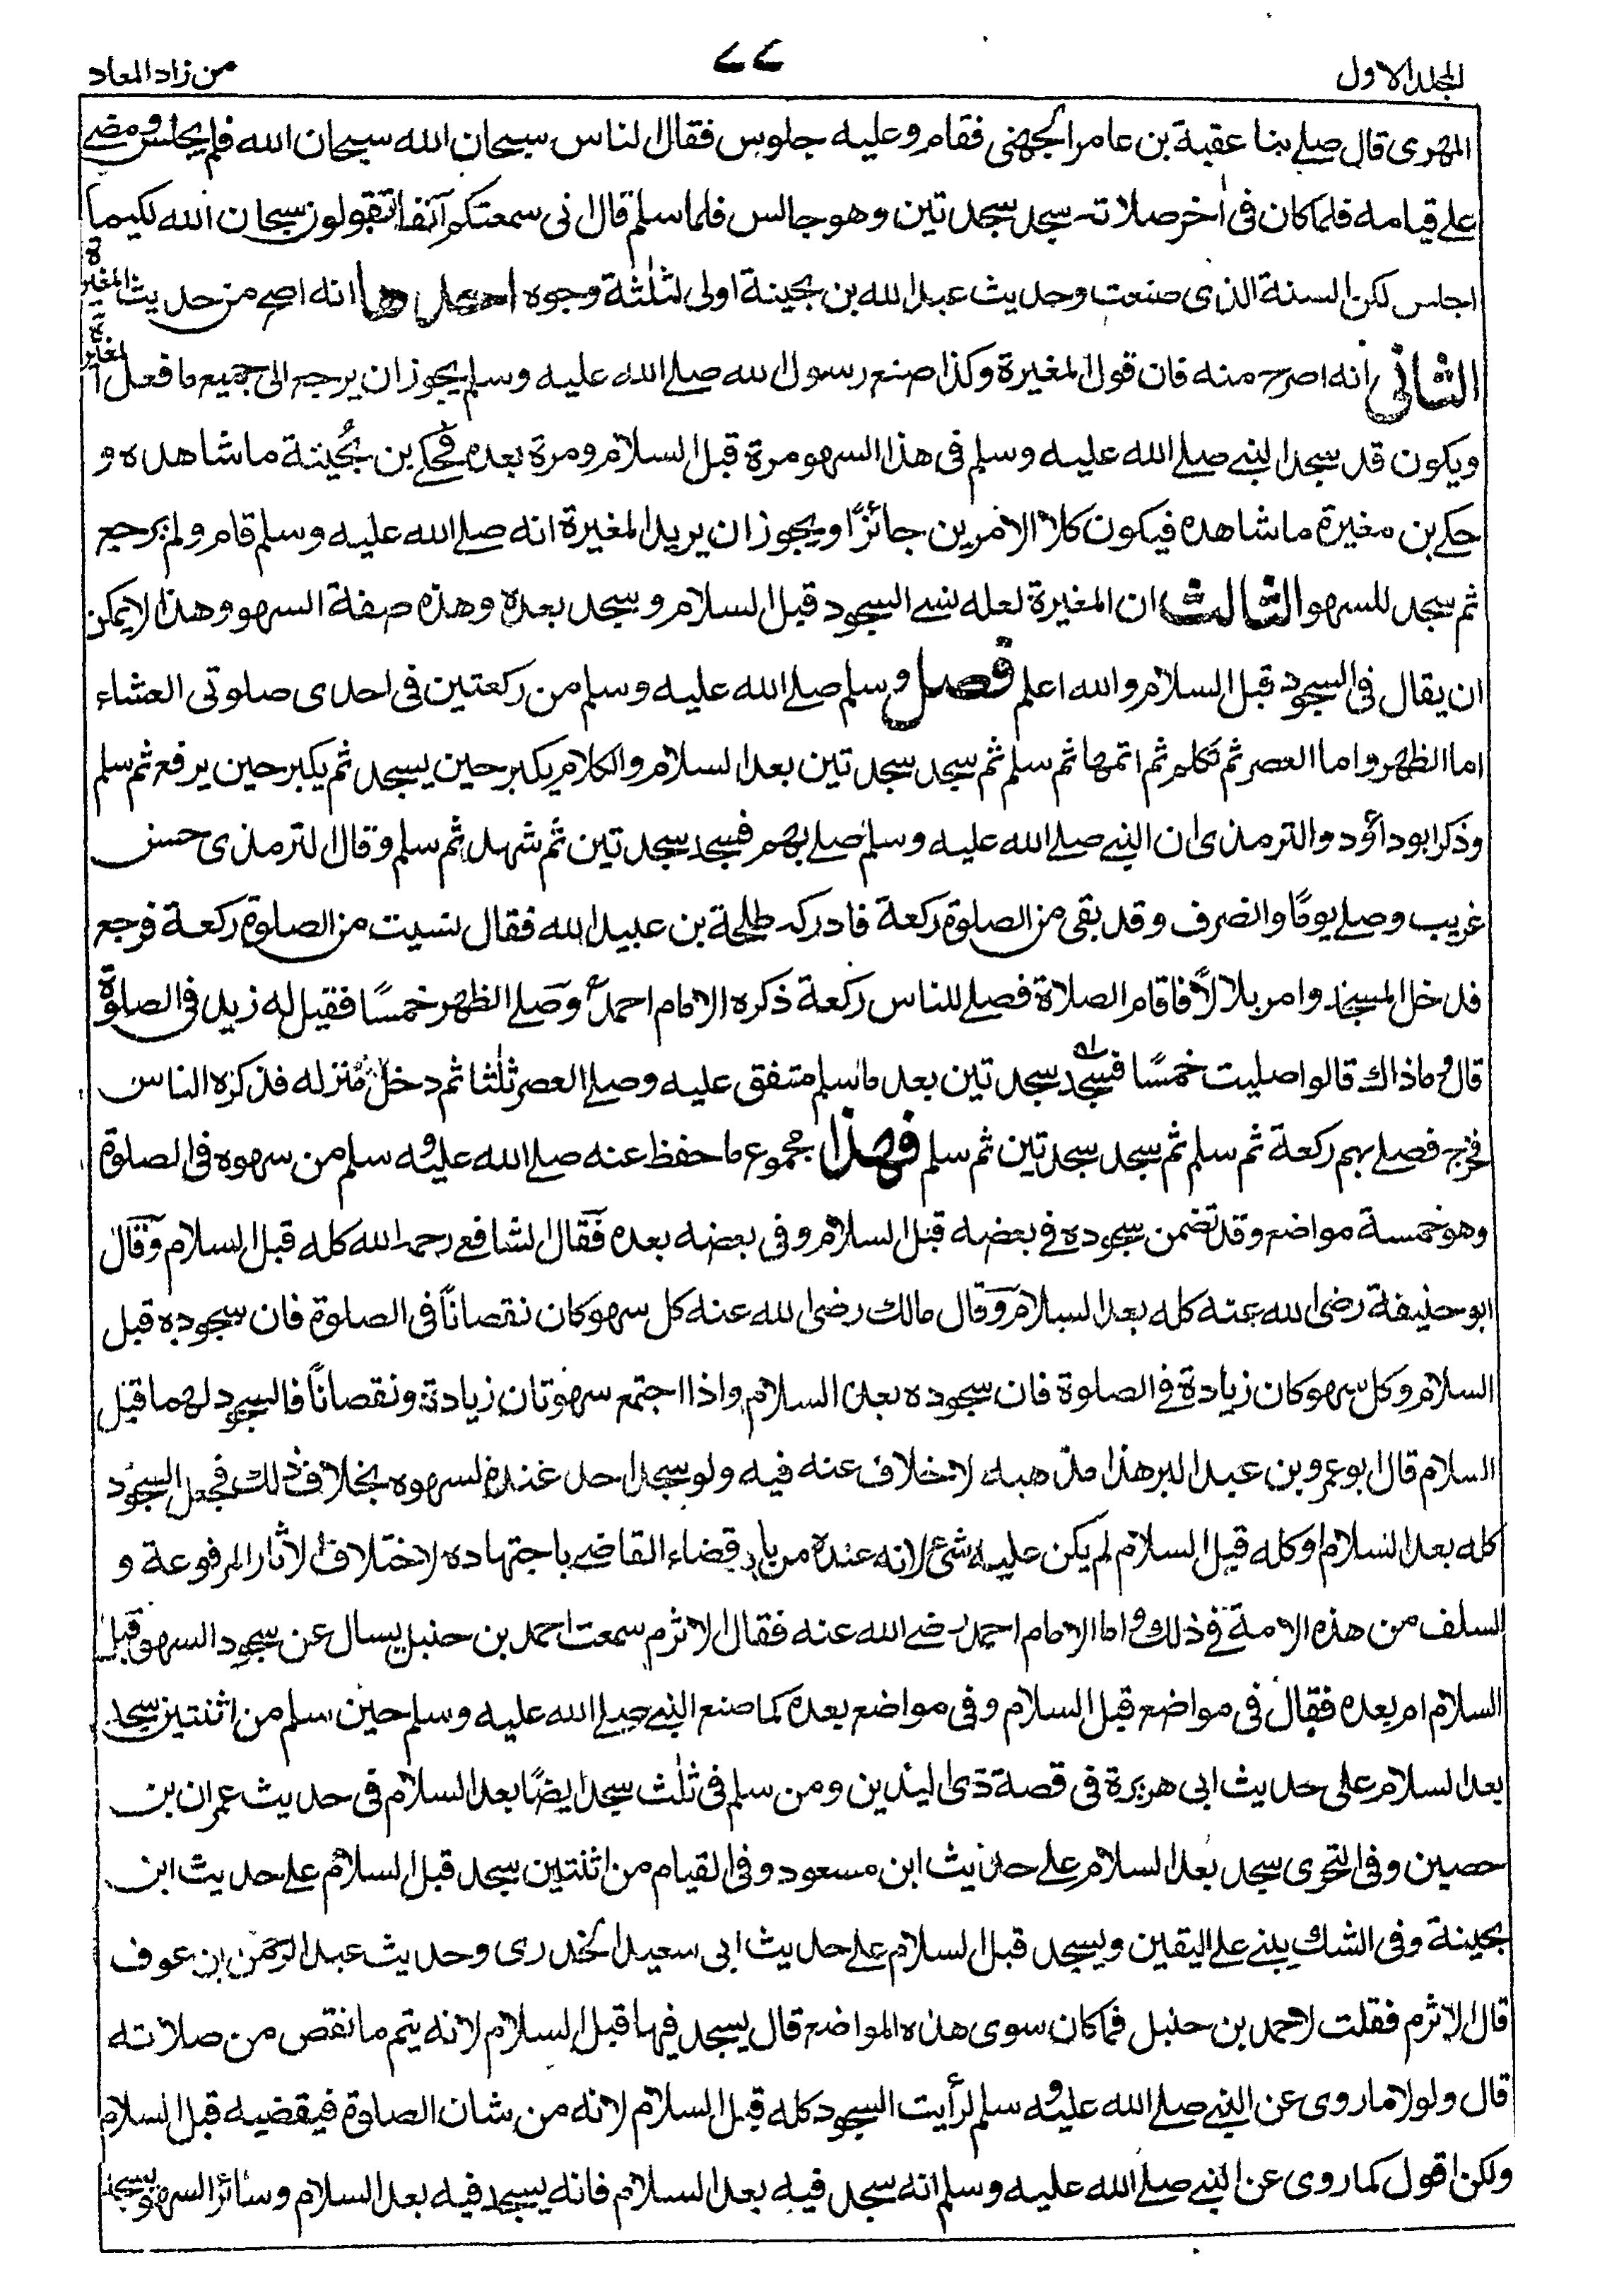 المجلد الاول
٧٧
من زاد المعاد
المهرى قال صلے بنا عقبة بن عامر الجهنى فقام وعليه جلوس فقال الناس سبحان الله سبحان الله فلم يجلس ومضے
علے قيامه فلما كان فى اٰخر صلاته سجد سجدتين وهو جالس فلما سلم قال انى سمعتكم آنفا تقولون سبحان الله لكيما
اجلس لكن السنة الذى صنعت وحديث عبد الله بن بحينة اولى لثلٰثة وجوه احدها انه اصح من حديث المغيرة
الثانى انه اصرح منه فان قول المغيرة وكذا صنع رسول الله صلے الله عليه وسلم يجوز ان يرجع الى جميع ما فعل المغيرة
ويكون قد سجد النبے صلے الله عليه وسلم فى هذا السهو مرة قبل السلام ومرة بعده فحكے بن بُحينة ما شاهده و
حكے بن مغيرة ما شاهده فيكون كلا الامرين جائزًا ويجوز ان يريد المغيرة انه صلے الله عليه وسلم قام ولم يرجع
ثم سجد للسهو الثالث ان المغيرة لعله نسے السجود قبل السلام وسجد بعده وهذه صفة السهو وهذا لا يمكن
ان يقال فى السجود قبل السلام والله اعلم فصل وسلم صلے الله عليه وسلم من ركعتين فى احدى صلوتى العشاء
اما الظهر واما العصر ثم تكلم ثم اتمها ثم سلم ثم سجد سجدتين بعد السلام والكلام يكبر حين يسجد ثم يكبر حين يرفع ثم سلم
وذكر ابو داؤد والترمذى ان النبے صلے الله عليه وسلم صلے بهم فسجد سجدتين ثم شهد ثم سلم وقال الترمذى حسن
غريب وصلے يومًا وانصرف وقد بقى من الصلوة ركعة فادركه طلحة بن عبيد الله فقال نسيت من الصلوة ركعة فرجع
فدخل المسجد وامر بلالاً فاقام الصلاة فصلے للناس ركعة ذكره الامام احمد وصلے الظهر خمسًا فقيل له زيد فى الصلوة
قال وما ذاك قالوا صليت خمسًا فسجد سجدتين بعد ما سلم متفق عليه وصلے العصر ثلٰثا ثم دخل منزله فذكره الناس
فخرج فصلے بهم ركعة ثم سلم ثم سجد سجدتين ثم سلم فهذا مجموع ما حفظ عنه صلے الله عليه وسلم من سهوه فى الصلوة
وهو خمسة مواضع وقد تضمن سجوده فے بعضه قبل السلام وفى بعضه بعده فقال الشافعے رحمه الله كله قبل السلام وقال
ابو حنيفة رضى الله عنه كله بعد السلام وقال مالك رضى الله عنه كل سهو كان نقصاناً فى الصلوة فان سجوده قبل
السلام وكل سهو كان زيادة فے الصلوة فان سجوده بعد السلام واذا اجتمع سهوتان زيادة ونقصاناً فالسجود لهما قبل
السلام قال ابو عمرو بن عبد البر هذا مذهبه لا خلاف عنه فيه ولو سجد احد عنده لسهوه بخلاف ذلك فجعل السجود
كله بعد السلام او كله قبل السلام لم يكن عليه شئ لانه عنده من باب قضاء القاضے باجتهاده لاختلاف الاثار المرفوعة و
السلف من هذه الامة فے ذلك واما الامام احمد رضے الله عنه فقال الاثرم سمعت احمد بن حنبل يسال عن سجود السهو قبل
السلام ام بعده فقال فى مواضع قبل السلام وفى مواضع بعده كما صنع النبے صلے الله عليه وسلم حين سلم من اثنتين سجد
بعد السلام على حديث ابى هريرة فى قصة ذى اليدين ومن سلم فى ثلٰث سجد ايضًا بعد السلام فى حديث عمران بن
حصين وفى التحرى سجد بعد السلام علے حديث ابن مسعود وفى القيام من اثنتين سجد قبل السلام علے حديث ابن
بحينة وفى الشك يبنے علے اليقين ويسجد قبل السلام علے حديث ابى سعيد الخدرى وحديث عبد الرحمٰن ابن عوف
قال الاثرم فقلت لاحمد بن حنبل فما كان سوى هذه المواضع قال يسجد فيها قبل السلام لانه يتم ما نقص من صلاته
قال ولولا ما روى عن النبے صلے الله عليه وسلم لرأيت السجود كله قبل السلام لانه من شان الصلوة فيقضيه قبل السلام
ولكن اقول كما روى عن النبے صلے الله عليه وسلم انه سجد فيه بعد السلام فانه يسجد فيه بعد السلام وسائر السهو يسجد